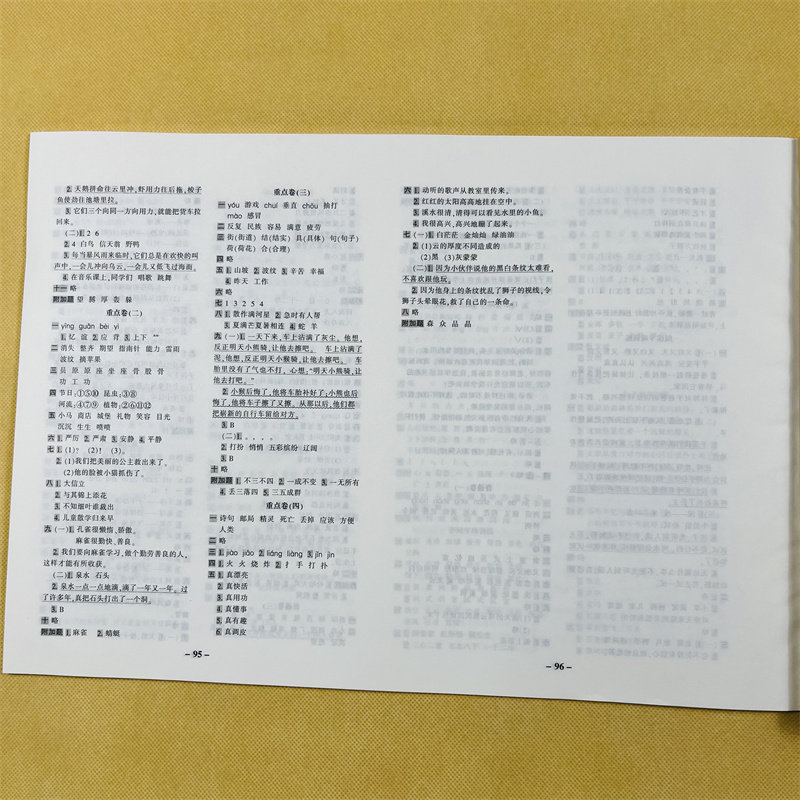 2 天鹅拼命往云里冲,虾用力往后拖,梭子
鱼使劲往池塘里拉。
3 它们三个向同一方向用力,就能把货车拉
回来。
(二)1 2 6
2 4 白鸟 信天翁 野鸭
3 每当暴风雨来临时,它们总是在欢快的叫
声中,一会儿冲向乌云,一会儿又俄飞过海面。
4 在音乐课上,同学们 唱歌 跳舞
十一 略
附加题 望 搏 厚 袭 躲
重点卷(二)
一 yīng guān bèi yì
1 忆 谊 2 应 背 3 上下 “”
二 消失 整齐 期望 指南针 能力 雷雨
波纹 摘苹果
三 员 原 原 座 坐 座 骨 股 骨
功 工 功
四 节日:①⑤⑩ 昆虫:③⑧
河流:④⑦⑨ 植物:②⑥⑪⑫
五 小马 商店 城堡 礼物 笑容 目光
沉沉 生生 喷喷
六 1 严厉 2 严肃 3 安静 4 平静
七 1 (1)? (2)! (3)。
2 (1)我们把美丽的公主救出来了。
(2)他的脸被小猫抓伤了。
八 1 大信立
2 与其锦上添花
3 不知细叶谁裁出
4 儿童散学归来早
九 (一)1 孔雀很懒惰、骄傲。
麻雀很勤快、善良。
2 我们要向麻雀学习,做个勤劳善良的人,
这样才能有所收获。
(二)1 泉水 石头
2 泉水一点一点地滴,滴了一年又一年。过
了许多年,真把石头打出了一个洞。
3 B
十 略
附加题 1 麻雀 2 蜻蜓
– 95 –
重点卷(三)
一 yóu 游戏 chuí 垂直 chōu 抽打
mào 感冒
二 反复 民族 容易 满意 疲劳
三 街(街道) 结(结实) 具(具体) 句(句子)
荷(荷花) 合(合理)
四 略
五 1 山坡 2 波纹 3 辛苦 幸福
4 昨天 工作
六 略
七 1 3 2 5 4
八 1 散作满河星 2 急时有人帮
3 夏满芒夏暑相连 4 蛇 羊
九 (一)1 一天下来,车上沾满了灰尘。他想,
反正明天小熊骑,让他去擦吧。 车上沾满了
泥,他想,反正明天小猴骑,让他去擦吧。 车
胎里没有了气也不打,心想:“明天小熊骑,让
他去打吧。”
2 小猴后悔了,他将车胎补好了;小熊也后
悔了,他将车子擦了又擦。从那以后,他们都
把崭新的自行车留给对方。
3 B
(二)1 。,。,
2 打扮 悄悄 五彩缤纷 辽阔
3 B
十 略
附加题 1 不三不四 2 一成不变 3 一无所有
4 丢三落四 5 三五成群
重点卷(四)
一 诗句 邮局 精灵 死亡 丢掉 应该 方便
人类
二 略
三 1 jiào jiǎo 2 liáng liàng 3 jǐn jìn
四 1 火 火 烧 炸 2 扌 手 打 扑
五 1 真漂亮
2 真快活
3 真用功
4 真懂事
5 真有趣
6 真调皮
六 1 动听的歌声从教室里传来。
2 红红的太阳高高地挂在空中。
3 溪水很清,清得可以看见水里的小鱼。
4 我很高兴,高兴地蹦了起来。
七 (一)1 白茫茫 金灿灿 绿油油
2 (1)云的厚度不同造成的
(2)黑 (3)灰蒙蒙
(二)1 因为小伙伴说他的黑白条纹太难看,
不喜欢跟他玩。
2 因为他身上的条纹扰乱了狮子的视线,令
狮子头晕眼花,救了自己的一条命。
八 略
附加题 森 众 品 晶
– 96 –